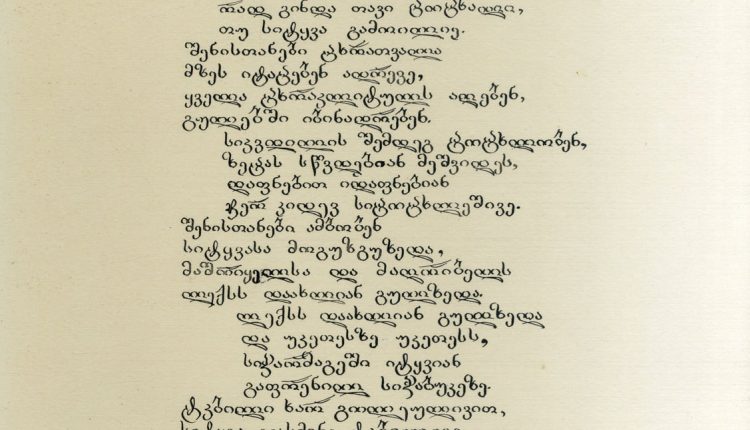 რად გინდა თავი ცოცხალი,
თუ სიტყვა გამოილიე.
შენისთანები ცხრათვალა
მზეს იტაცებენ ადრევე,
ყველა ცხრაკლიტულს აღებენ,
გულებში იბინადრებენ.
სიკვდილის შემდეგ ცოცხლობენ,
ზეცას სწვდებიან მეშვიდეს,
დაფნებით იდაფნებიან
ჯერ კიდევ სიცოცხლეშივე.
შენისთანები ამბობენ
სიტყვასა მოგუზგუზედა,
მაშრიყელსა და მაღრიბელს
ლექსს დაახლიან გულზედა.
ლექსს დაახლიან გულზედა
და უკეთესზე უკეთესს,
სიჭარმაგეში იტყვიან
გაფრენილ სიჭაბუკეზე.
ტკბილი ხარ გოლეულივით,